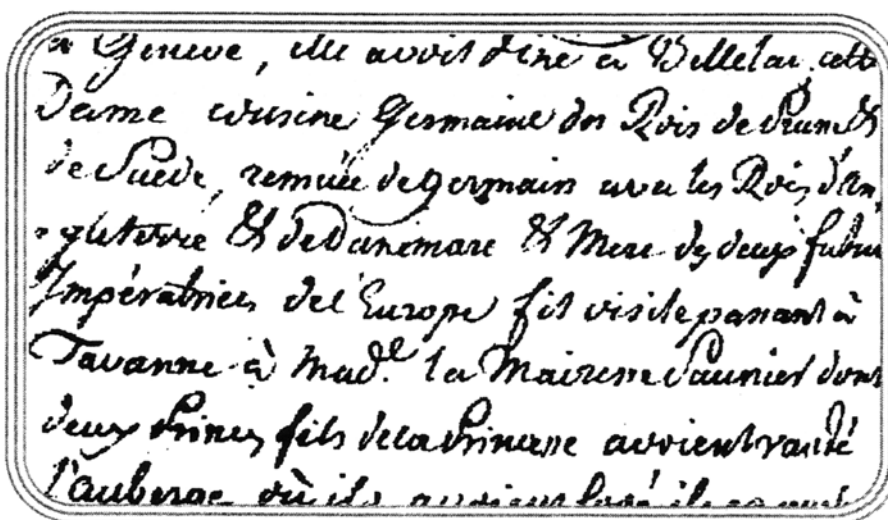 à Geneve, elle avoit diné à Bellelai, cette
Dame cousine Germaine des Rois de Prusse &
de Suede, remuée de germain avec les Rois d'An
gleterre & de Danemarc & Mere des deux futures
Impératrices de l'Europe fit visite passant à
Tavanne à Mad.e la Mairesse Saunier dont
deux Princes fils de la Princesse avoient vanté
l'auberge où ils avoient logé il